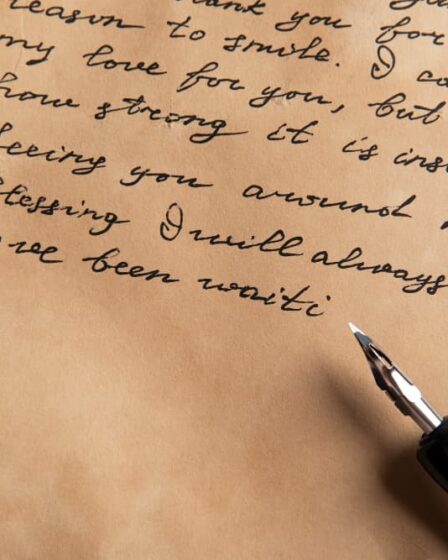 thank you for
reason to smile. I ca
my love for you, but
how strong it is ins
seeing you around
blessing I will always
've been waiti